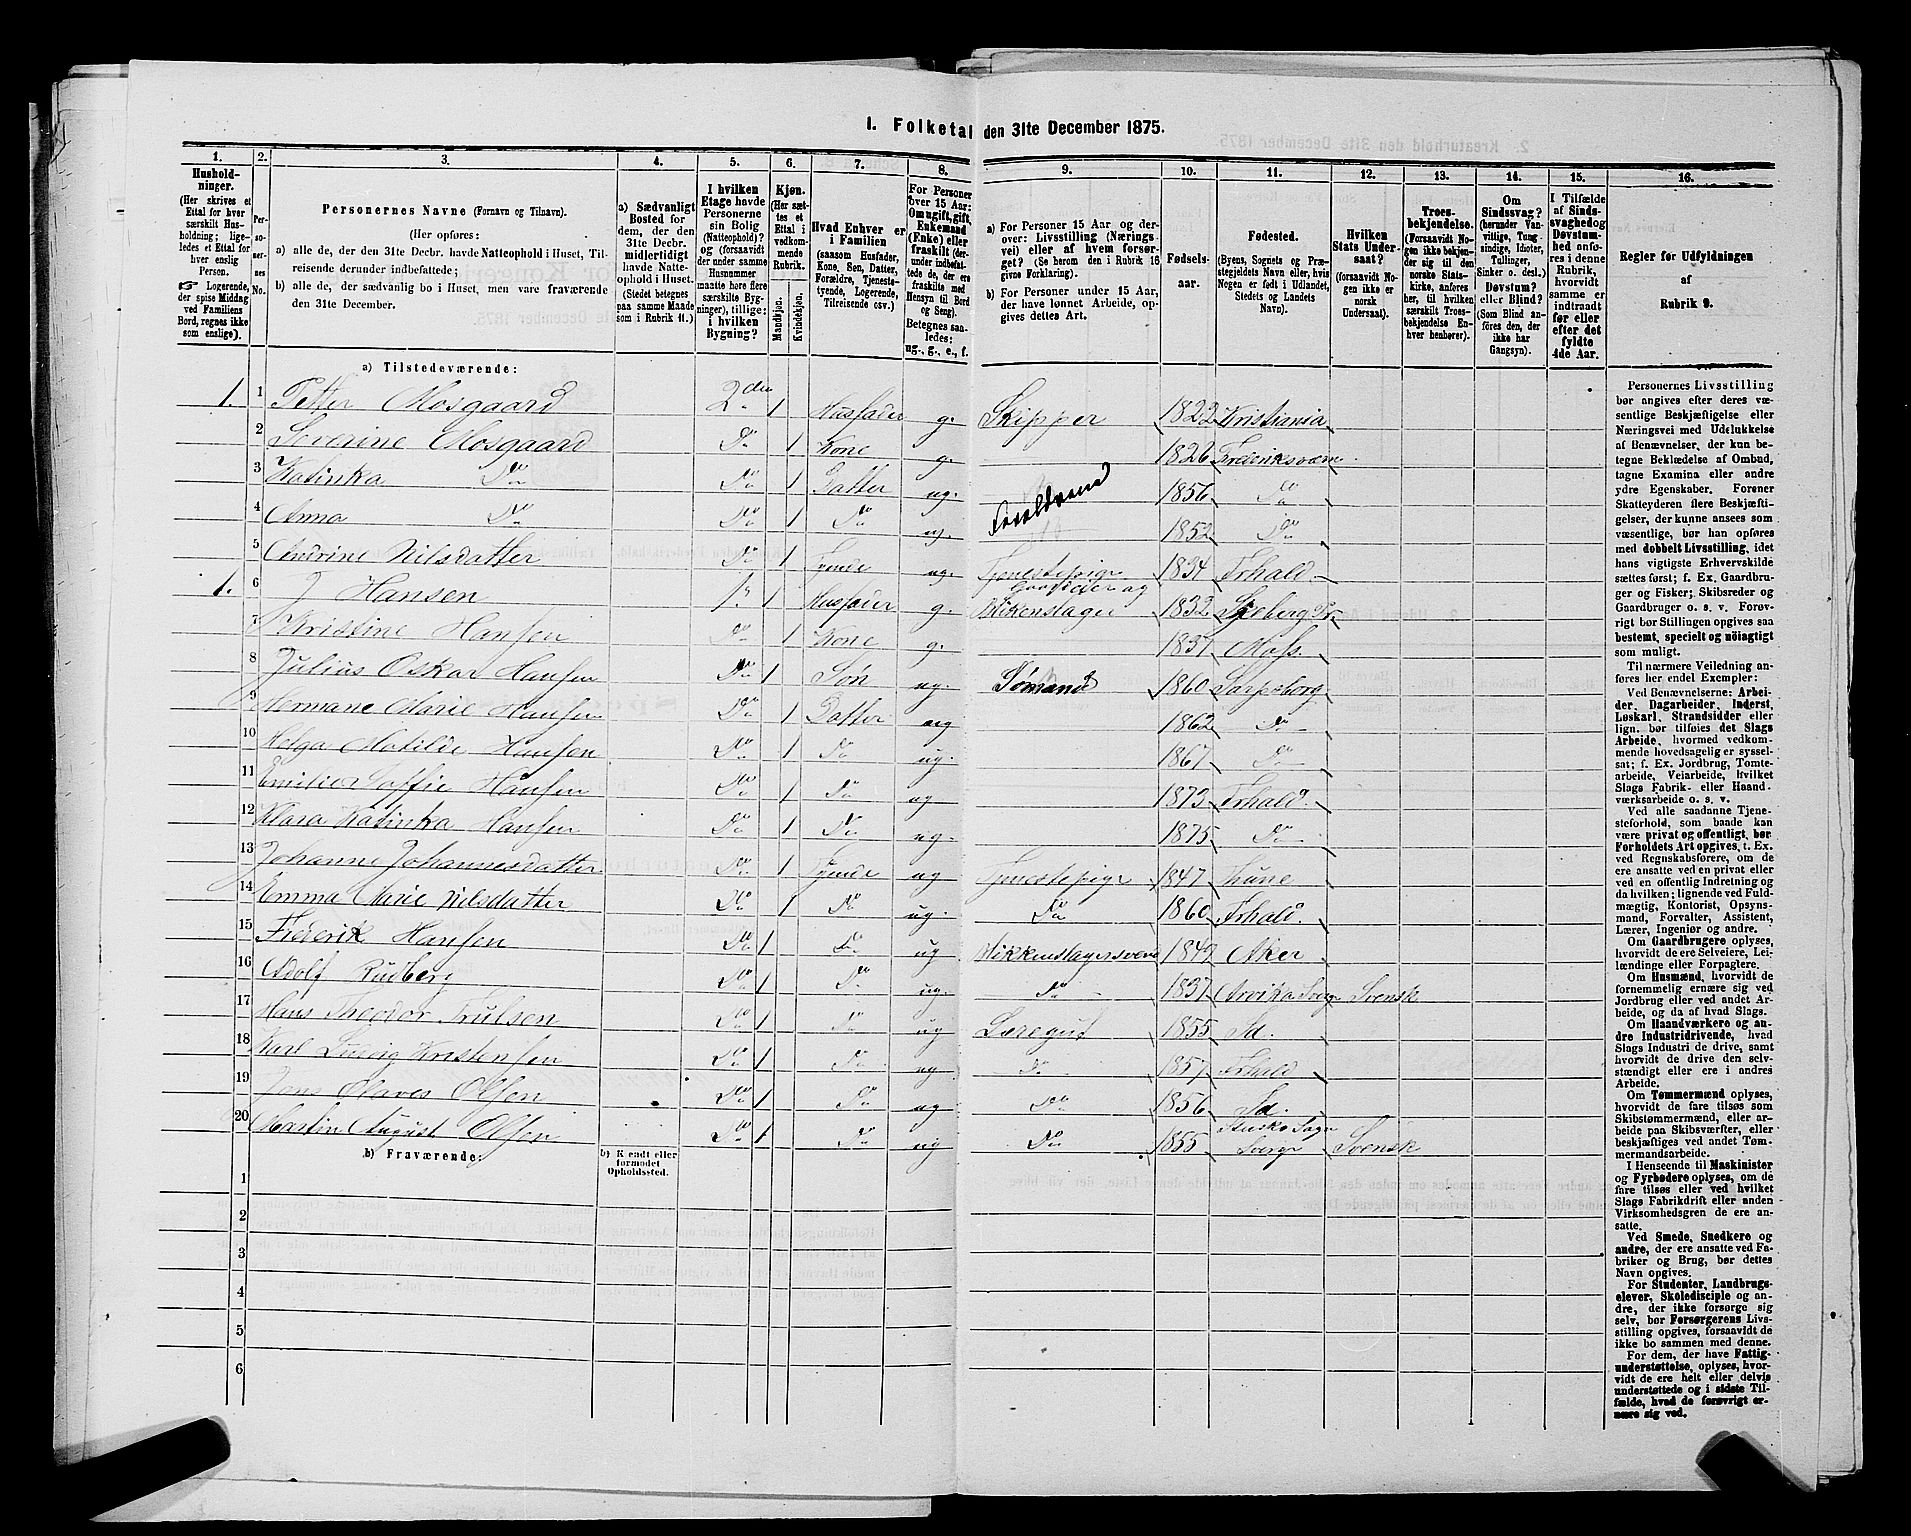 I. Folketal den 31te December 1875.
1. 2. 3. 4. 5. 6. 7. 8. 9. 10. 11. 12. 13. 14. 15. 16.
Husholdninger.
(Her skrives et Ettal for hver særskilt Husholdning; ligeledes et Ettal for hver enslig Person.
☞ Logerende, der spise Middag ved Familiens Bord, regnes ikke som enslige).
Personernes No.
Personernes Navne (Fornavn og Tilnavn).
(Her opføres:
a) alle de, der den 31te Decbr. havde Natteophold i Huset, Tilreisende derunder indbefattede;
b) alle de, der sædvanlig bo i Huset, men vare fraværende den 31te December.
a) Sædvanligt Bosted for dem, der den 31te Decbr. midlertidigt havde Natteophold i Huset. (Stedet betegnes paa samme Maade som i Rubrik 11.)
I hvilken Etage havde Personerne sin Bolig (Natteophold)? og (forsaavidt der under samme Husnummer maatte høre flere særskilte Bygninger), tillige: i hvilken Bygning?
Kjøn. (Her sættes et Ettal i vedkommende Rubrik.
Mandkjøn. Kvindekjøn.
Hvad Enhver er i Familien (saasom Husfader, Kone, Søn, Datter, Forældre, Tjenestetyende, Logerende, Tilreisende osv.)
For Personer over 15 Aar: Om ugift, gift, Enkemand (Enke) eller fraskilt (derunder indbefattede de, der ere fraskilte med Hensyn til Bord og Seng).
Betegnes saaledes: ug., g., e., f.
a) For Personer 15 Aar og derover: Livsstilling (Næringsvei) eller af hvem forsørget? (Se herom den i Rubrik 16 givne Forklaring).
b) For Personer under 15 Aar, der have lønnet Arbeide, opgives dettes Art.
Fødselsaar.
Fødested. (Byens, Sognets og Præstegjeldets Navn eller, hvis Nogen er født i Udlandet, Stedets og Landets Navn).
Hvilken Stats Undersaat? (forsaavidt Nogen ikke er norsk Undersaat).
Troesbekjendelse. (Forsaavidt Nogen ikke bekjender sig til den norske Statskirke, anføres her, til hvilken særskilt Troesbekjendelse Enhver henhører).
Om Sindssvag? (herunder Vanvittige, Tungsindige, Idioter, Tullinger, Sinker o. desl.) Døvstum? eller Blind? (Som Blind anføres den, der ikke har Gangsyn).
I Tilfælde af Sindssvaghed og Døvstumhed anføres i denne Rubrik, hvorvidt samme er indtraadt før eller efter det fyldte 4de Aar.
Regler for Udfyldningen af Rubrik 9.
a) Tilstedeværende:
1. 1 Petter Mosgaard 2den 1 Husfader g. Skipper 1822 Kristiania
2 Severine Mosgaard Do 1 Kone g. 1826 Frederiksværn
3 Katinka Do Do 1 Datter ug. 1856 Do
4 Anna Do Do 1 Do ug. 1852 Do
5 Andrine Nilsdatter Do 1 Tyende ug. Tjenestepige 1834 Frhald.
1. 6 J Hansen 1ste 1 Husfader g. Gaardeier og Blikenslager 1832
7 Kristine Hansen Do 1 Kone g. 1837 Moss.
8 Julius Oskar Hansen Do 1 Søn ug. Sømand 1860 Sarpsborg
9 Hermane Marie Hansen Do 1 Datter ug 1862 Do
10 Helga Matilde Hansen Do 1 Do ug. 1867 Do
11 Emilie Soffie Hansen Do 1 Do ug 1873 Frhald.
12 Klara Katinka Hansen Do 1 Do ug. 1875 Do
13 Johanne Johannesdatter Do 1 Tyende ug Tjenestepige 1847 Thune
14 Emma Marie Nilsdatter Do 1 Do ug. Do 1860 Frhald.
15 Frederik Hansen Do 1 Do ug Blikkenslagersvend 1849 Aker
16 Adolf Rudberg Do 1 Do ug. Do 1837 Arvika Sverge Svensk
17 Hans Theodor Trulsen Do 1 Do ug Læregut 1855 Id.
18 Karl Ludvig Kristensen Do 1 Do ug Do 1857 Frhald
19 Jens Olaves Olsen Do 1 Do ug Do 1856 Id.
20 Martin August Olsen Do 1 Do ug Do 1855 Sverge Svensk
b) Fraværende: b) Kjendt eller formodet Opholdssted.
1
2
3
4
5
6
Personernes Livsstilling bør angives efter deres væsentlige Beskjæftigelse eller Næringsvei med Udelukkelse af Benævnelser, der kun betegne Beklædelse af Ombud, tagne Examina eller andre ydre Egenskaber. Forener Skatteyderen flere Beskjæftigelser, der kunne ansees som væsentlige, bør han opføres med dobbelt Livsstilling, idet hans vigtigste Erhvervskilde sættes først; f. Ex. Gaardbruger og Fisker; Skibsreder og Gaardbruger o. s. v. Forøvrigt bør Stillingen opgives saa bestemt, specielt og nöiagtigt som muligt.
Til nærmere Veiledning anføres her endel Exempler:
Ved Benævnelserne: Arbeider, Dagarbeider, Inderst, Løskarl, Strandsidder eller lign. bør tilføies det Slags Arbeide, hvormed vedkommende hovedsagelig er sysselsat; f. Ex. Jordbrug, Tomtearbeide, Veiarbeide, hvilket Slags Fabrik- eller Haandværksarbeide o. s. v.
Ved alle saadanne Tjenesteforhold, som baade kan være privat og offentligt, bør Forholdets Art opgives, t. Ex. ved Regnskabsførere, om de ere ansatte ved en privat eller ved en offentlig Indretning og da hvilken; lignende ved Fuldmægtig, Kontorist, Opsynsmand, Forvalter, Assistent, Lærer, Ingeniør og andre.
Om Gaardbrugere oplyses, hvorvidt de ere Selveiere, Leilændinge eller Forpagtere.
Om Husmænd, hvorvidt de fornemmelig ernære sig ved Jordbrug eller ved andet Arbeide, og da af hvad Slags.
Om Haandværkere og andre Industridrivende, hvad Slags Industri de drive, samt hvorvidt de drive den selvstændigt eller ere i andres Arbeide.
Om Tømmermænd oplyses, hvorvidt de fare tilsøs som Skibstømmermænd, eller arbeide paa Skibsværfter, eller beskjæftiges ved andet Tømmermandsarbeide.
I Henseende til Maskinister og Fyrbødere oplyses, om de fare tilsøs eller ved hvilket Slags Fabrikdrift eller anden Virksomhedsgren de ere ansatte.
Ved Smede, Snedkere og andre, der ere ansatte ved Fabriker og Brug, bør dettes Navn opgives.
For Studenter, Landbrugselever, Skoledisciple og andre, der ikke forsørge sig selv, bør Forsørgerens Livsstilling opgives, forsaavidt de ikke bo sammen med denne.
For dem, der have Fattigunderstøttelse, oplyses, hvorvidt de ere helt eller delvis understøttede og i sidste Tilfælde, hvad de forøvrigt ernære sig ved.